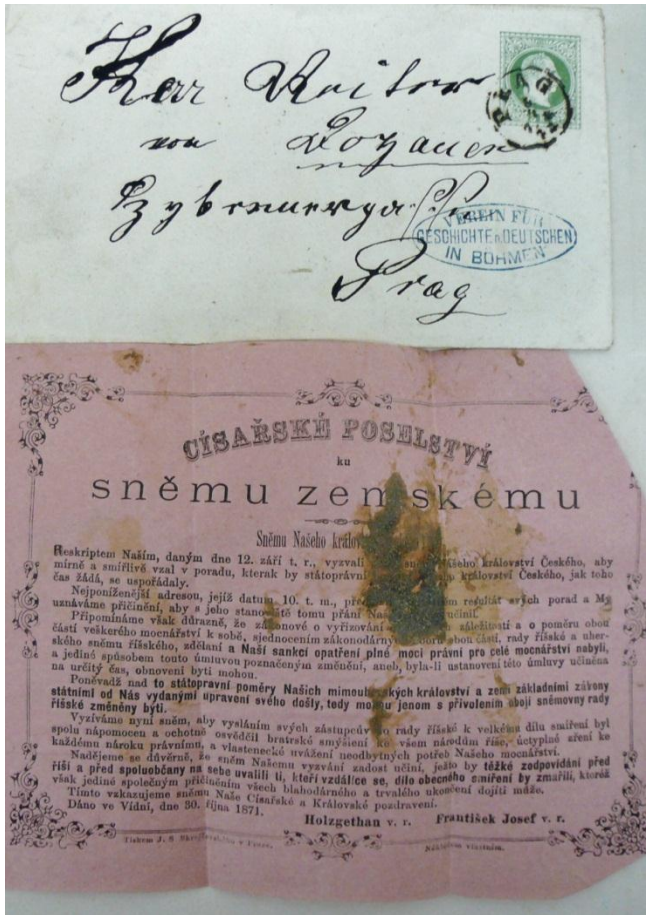 Prag
VEREIN FÜR
GESCHICHTE D. DEUTSCHEN
IN BÖHMEN
Prag
CÍSAŘSKÉ POSELSTVÍ
ku
sněmu zemskému
Sněmu Našeho
Reskriptem Naším, daným dne 12. září t. r., vyzvali království Českého, aby
mírně a smířlivě vzal v poradu, kterak by státoprávní království Českého, jak toho
čas žádá, se uspořádaly.
Nejponíženější adresou, jejíž datum 10. t. m., resultát porad a My
uznáváme přičinění, aby s jeho tomu přání učinil.
Připomínáme však důrazně, že o vyřizování záležitostí a o poměru obou
částí veškerého mocnářství k sobě, sjednocením obou částí, rady říšské a uher-
ského sněmu říšského, zdělaní a Naší sankcí opatření plné moci právní pro celé mocnářství nabyli,
a jediné spůsobem touto úmluvou poznačeným změnění, aneb, byla-li ustanovení této úmluvy učiněna
na určitý čas, obnovení býti mohou.
Poněvadž nad to státoprávní poměry Našich království a zemí základními zákony
státními od Nás vydanými upravení svého došly, tedy jenom s přivolením obojí sněmovny rady
říšské změněny býti.
Vyzíváme nyní sněm, aby vysláním svých zástupců do rady říšské k velkému dílu smíření byl
spolu nápomocen a ochotně osvědčil bratrské smýšlení ke všem národům říše, úctyplné zření ke
každému nároku právnímu, a vlastenecké uvážení neodbytných potřeb Našeho mocnářství.
Nadějeme se důvěrně, že sněm Našemu vyzvání zadost učiní, ješto by těžké zodpovídání před
říší a před spoluobčany na sebe uvalili ti, kteří vzdálíce se, dílo obecného smíření by zmařili, kteréž
však jediné společným přičiněním všech blahodárného a trvalého ukončení dojíti může.
Tímto vzkazujeme sněmu Naše Císařské a Královské pozdravení.
Dáno ve Vídni, dne 30. října 1871.
Holzgethan v. r. František Josef v. r.
Tiskem J. S. v Praze. Nákladem vlastním.